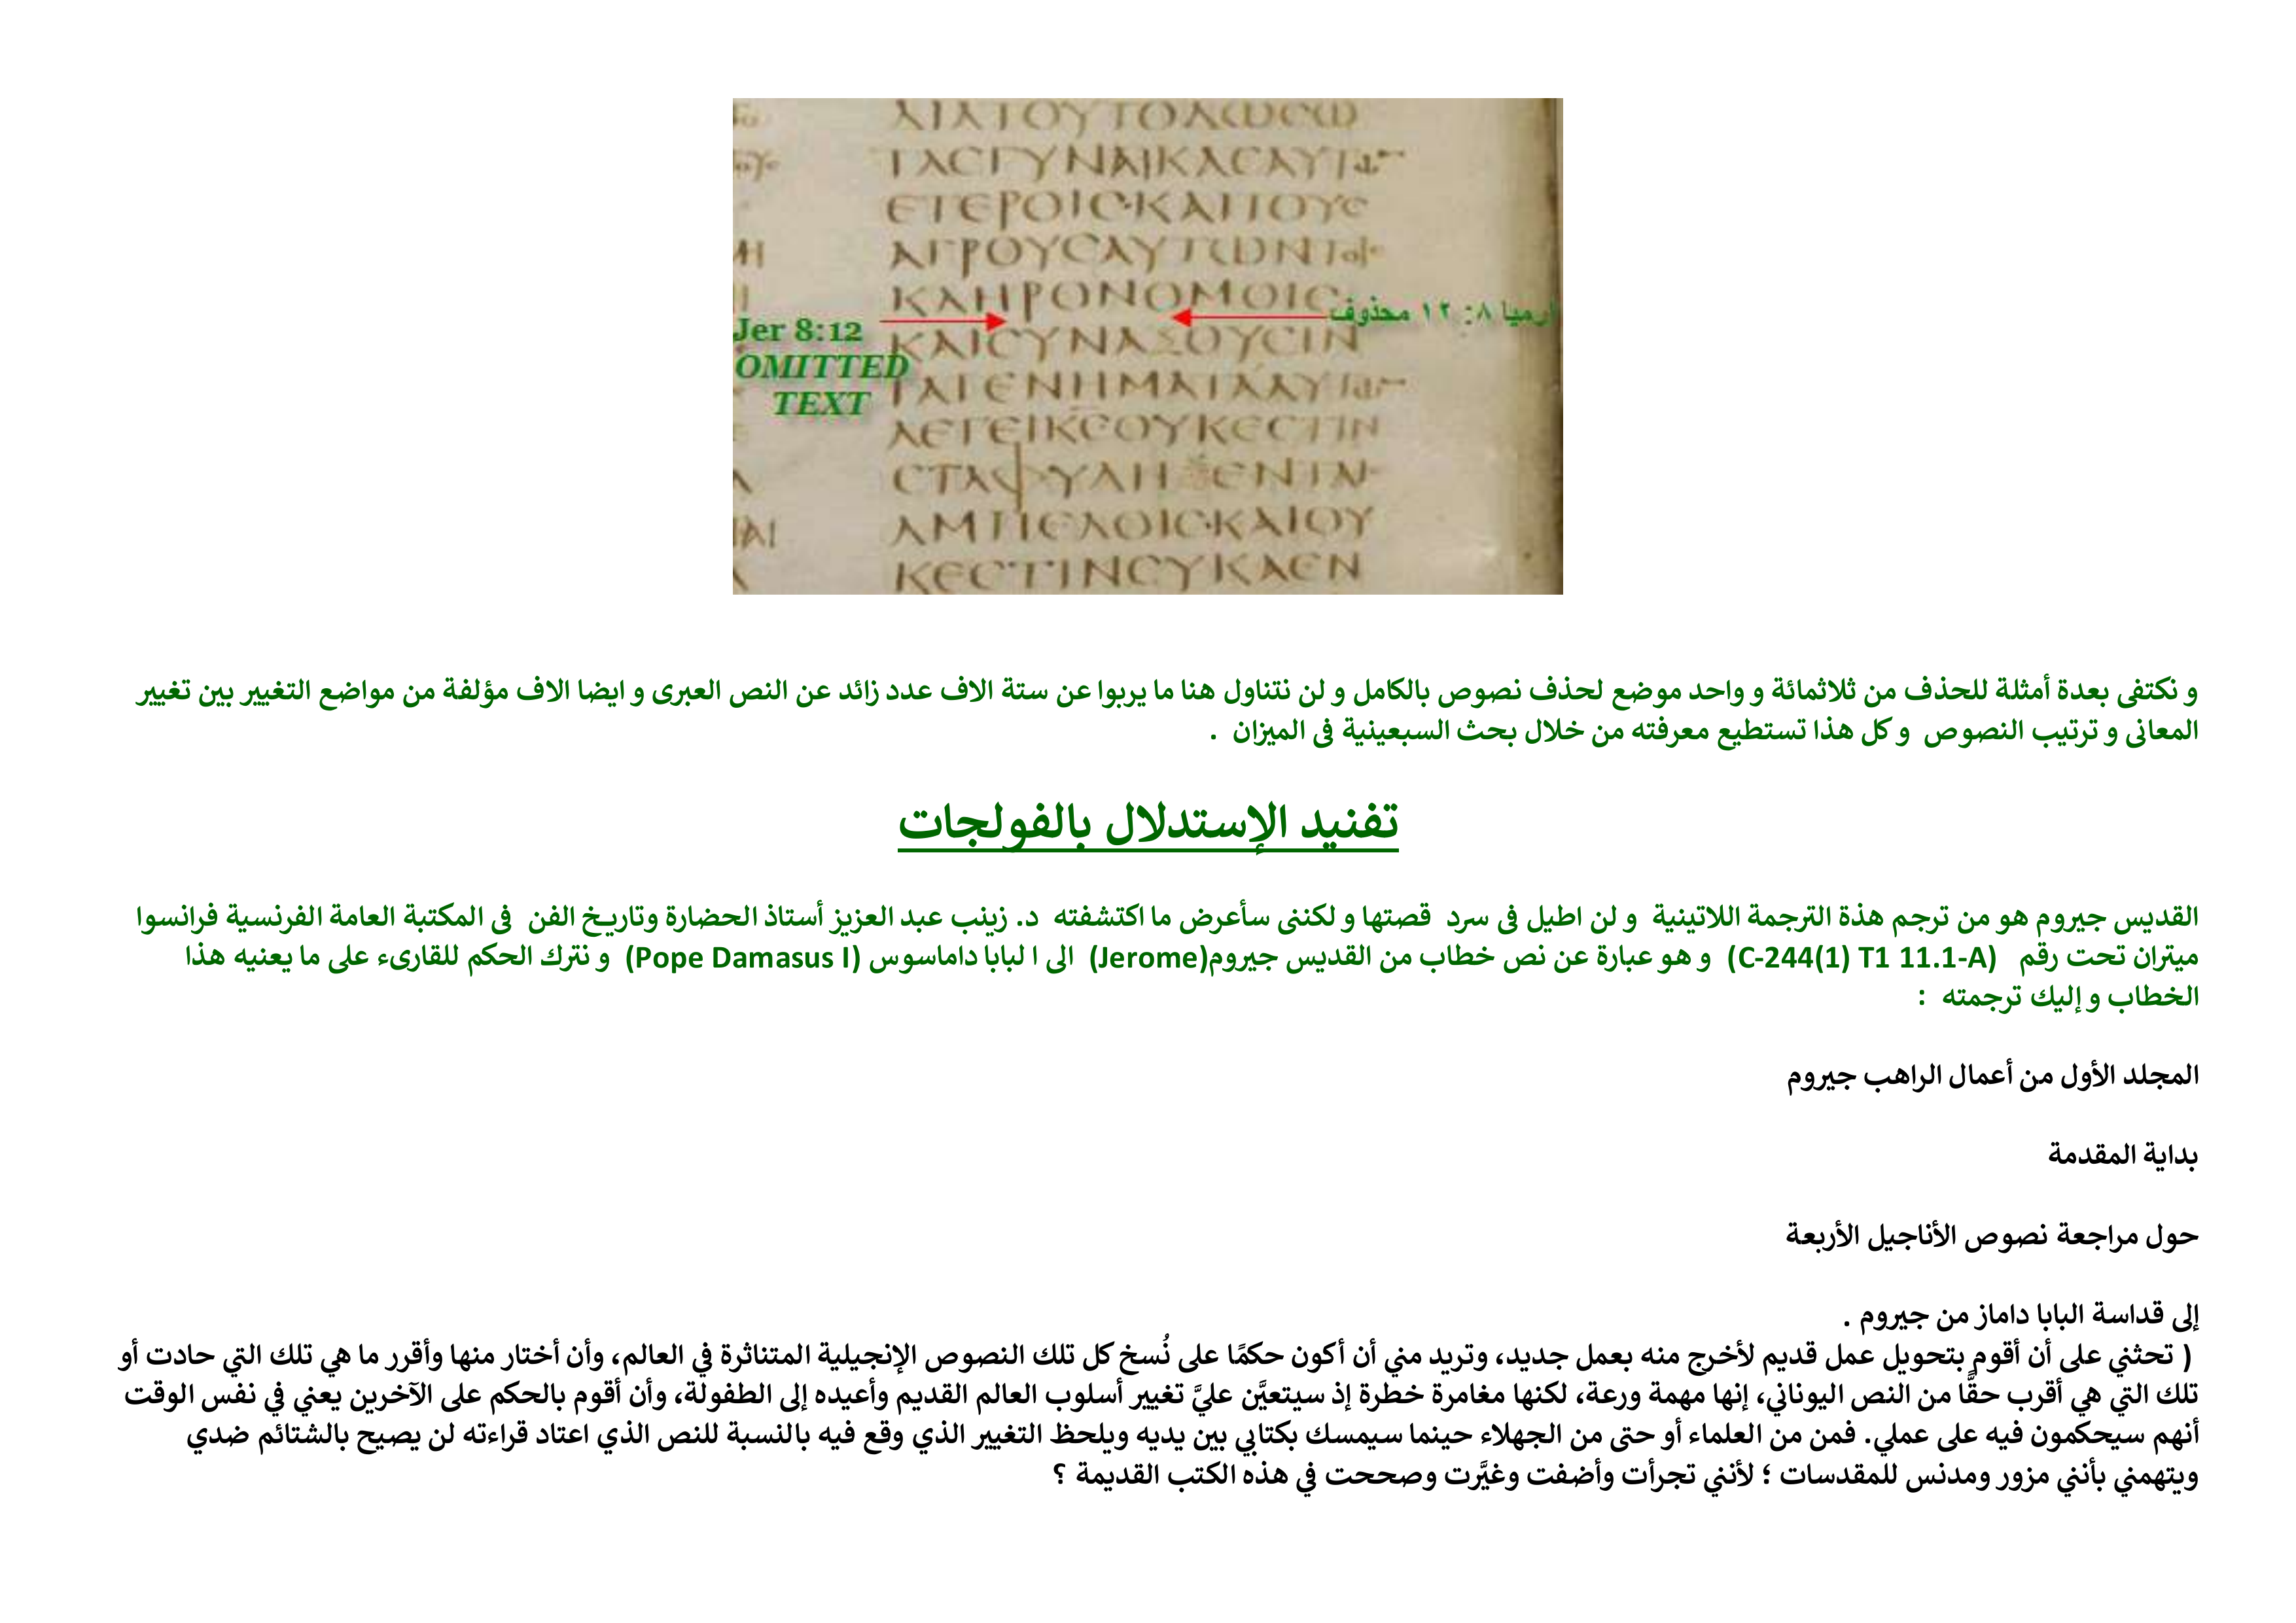 ΛΙΑΤΟΥΤΟΔΩCΩ
ΤΑCΓΥΝΑΙΚΑCΑΥΤω
ΕΤΕΡΟΙC·ΚΑΙΤΟΥC
ΑΓΡΟΥCΑΥΤΩΝΤοι
ΚΛΗΡΟΝΟΜΟΙC
ارميا ٨: ١٢ محذوف
Jer 8:12
OMITTED
TEXT
ΚΑΙCΥΝΑΞΟΥCΙΝ
ΤΑΓΕΝΗΜΑΤΑΑΥΤω
ΛΕΓΕΙΚCΟΥΚΕCΤΙΝ
CΤΑΦΥΛΗ ΕΝΤΑΙ
ΑΜΠΕΛΟΙC·ΚΑΙΟΥ
ΚΕCΤΙΝCΥΚΑΕΝ
و نكتفى بعدة أمثلة للحذف من ثلاثمائة و واحد موضع لحذف نصوص بالكامل و لن نتناول هنا ما يربوا عن ستة الاف عدد زائد عن النص العبرى و ايضا الاف مؤلفة من مواضع التغيير بين تغيير
المعانى و ترتيب النصوص و كل هذا تستطيع معرفته من خلال بحث السبعينية فى الميزان .
تفنيد الإستدلال بالفولجات
القديس جيروم هو من ترجم هذة الترجمة اللاتينية و لن اطيل فى سرد قصتها و لكننى سأعرض ما اكتشفته د. زينب عبد العزيز أستاذ الحضارة وتاريخ الفن فى المكتبة العامة الفرنسية فرانسوا
ميتران تحت رقم (C-244(1) T1 11.1-A) و هو عبارة عن نص خطاب من القديس جيروم(Jerome) الى ا لبابا داماسوس (Pope Damasus I) و نترك الحكم للقارىء على ما يعنيه هذا
الخطاب و إليك ترجمته :
المجلد الأول من أعمال الراهب جيروم
بداية المقدمة
حول مراجعة نصوص الأناجيل الأربعة
إلى قداسة البابا داماز من جيروم .
( تحثني على أن أقوم بتحويل عمل قديم لأخرج منه بعمل جديد، وتريد مني أن أكون حكمًا على نُسخ كل تلك النصوص الإنجيلية المتناثرة في العالم، وأن أختار منها وأقرر ما هي تلك التي حادت أو
تلك التي هي أقرب حقًّا من النص اليوناني، إنها مهمة ورعة، لكنها مغامرة خطرة إذ سيتعيَّن عليَّ تغيير أسلوب العالم القديم وأعيده إلى الطفولة، وأن أقوم بالحكم على الآخرين يعني في نفس الوقت
أنهم سيحكمون فيه على عملي. فمن من العلماء أو حتى من الجهلاء حينما سيمسك بكتابي بين يديه ويلحظ التغيير الذي وقع فيه بالنسبة للنص الذي اعتاد قراءته لن يصيح بالشتائم ضدي
ويتهمني بأنني مزور ومدنس للمقدسات ؛ لأنني تجرأت وأضفت وغيَّرت وصححت في هذه الكتب القديمة ؟